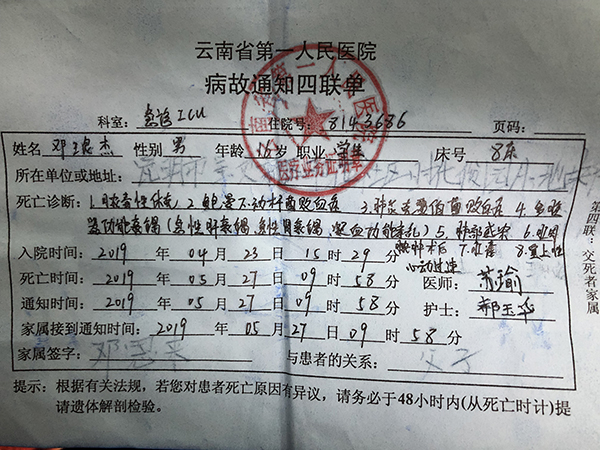 云南省第一人民医院
病故通知四联单
科室: 急诊ICU 住院号: 8143686 页码:
姓名 邓 杰 性别 男 年龄 15岁 职业 学生 床号 8床
所在单位或地址:
死亡诊断: 1. 性休克 2. 鲍曼不动杆菌败血症 3. 肺炎克雷伯菌败血症 4. 多脏
器功能衰竭(急性肝衰竭、急性肾衰竭、凝血功能紊乱) 5. 6.
术后 7. 8. 室上性
心动过速
入院时间: 2019 年 04 月 23 日 15 时 29 分
死亡时间: 2019 年 05 月 27 日 09 时 58 分 医师: 苏瑜
通知时间: 2019 年 05 月 27 日 09 时 58 分 护士: 郝玉华
家属接到通知时间: 2019 年 05 月 27 日 09 时 58 分
家属签字: 邓 与患者的关系: 父子
提示: 根据有关法规,若您对患者死亡原因有异议,请务必于48小时内(从死亡时计)提
请遗体解剖检验。
第四联:交死者家属
云南省第一人民医院
医疗业务证明章